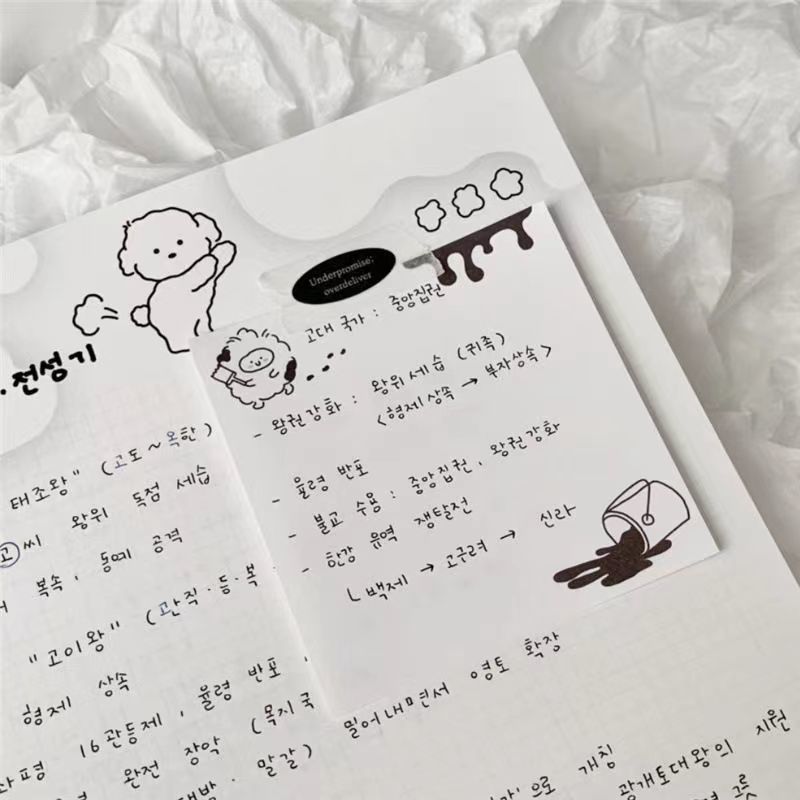 Underpromise;
overdeliver
고대 국가 : 중앙집권
- 왕권강화 : 왕위세습 (귀족)
<형제상속 → 부자상속>
- 율령 반포
- 불교 수용 : 중앙집권, 왕권강화
- 한강 유역 쟁탈전
ㄴ 백제 → 고구려 → 신라
.전성기
태조왕" (고도~옥한)
고씨 왕위 독점 세습
복속, 동예 공격
"고이왕" (관직·등·복·
형제 상속
16관등제, 율령 반포,
완전 장악 (목지국
밀어내면서 영토 확장
말갈)
로 개칭
광개토대왕의 지원